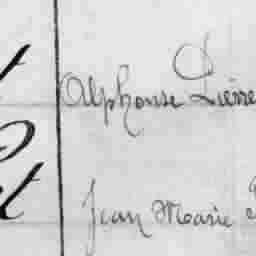 Alphonse Pierre
Jean Marie